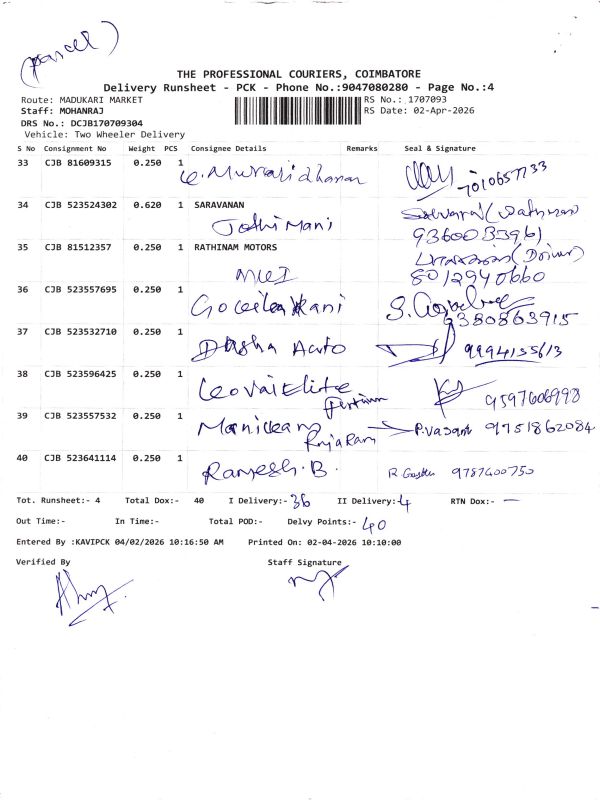 (parcel)
THE PROFESSIONAL COURIERS, COIMBATORE
Delivery Runsheet - PCK - Phone No.:9047080280 - Page No.:4
Route: MADUKARI MARKET
RS No.: 1707093
Staff: MOHANRAJ
RS Date: 02-Apr-2026
DRS No.: DCJB170709304
Vehicle: Two Wheeler Delivery
S No Consignment No Weight PCS Consignee Details Remarks Seal & Signature
33 CJB 81609315 0.250 1
G. Muralidharan 7010657733
34 CJB 523524302 0.620 1 SARAVANAN
Jothi Mani
9360033961
35 CJB 81512357 0.250 1 RATHINAM MOTORS
(Driver)
8012940660
36 CJB 523557695 0.250 1
Mani S. 6380863915
37 CJB 523532710 0.250 1
Dasha Auto 9994135613
38 CJB 523596425 0.250 1
Kovai Elite 9597606998
39 CJB 523557532 0.250 1
Manickam P. Vasant 9751862084
RajaRam
40 CJB 523641114 0.250 1
Ramesh. B. 9787400750
Tot. Runsheet:- 4 Total Dox:- 40 I Delivery:- 36 II Delivery:- 4 RTN Dox:- —
Out Time:- In Time:- Total POD:- Delvy Points:- 40
Entered By :KAVIPCK 04/02/2026 10:16:50 AM Printed On: 02-04-2026 10:10:00
Verified By Staff Signature